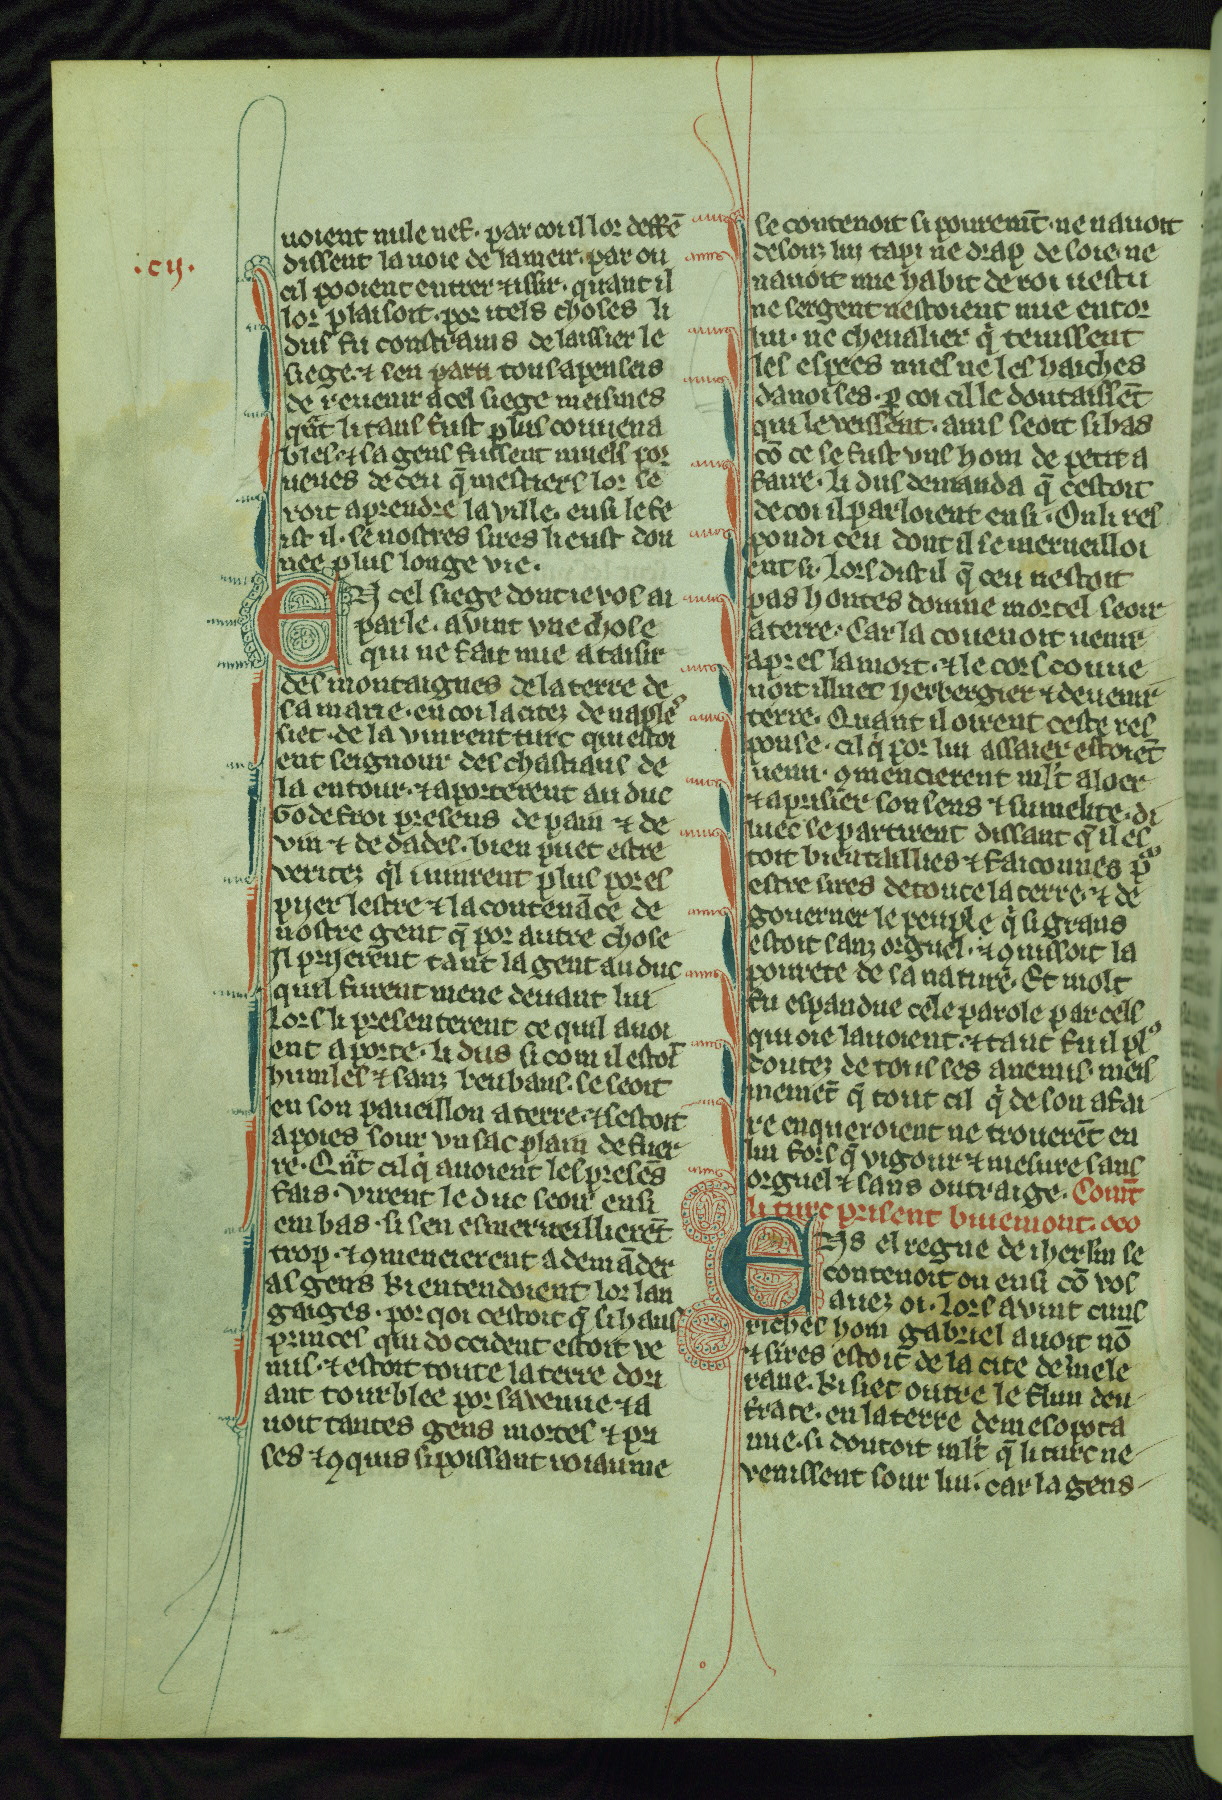 .cij.
uoient nule nef. par coi il lor deffē
dissent la uoie de la meir. par ou
cil pooient entrer ⁊ issir. quant il
lor plaisoit. por itels choses li
dus fu constrains de laissier le
siege. ⁊ sen parti tous apenseis
de reuenir a cel siege meismes
qnt li tans fust plus couuena
bles. ⁊ sa gens fussent miels por
ueues de ceu q̄ mestiers lor se
roit a prendre la ville. ensi le fe
ist il. se nostres sires li eust don
nee plus longe vie.
EN cel siege dont ie vos ai
parle. auint vne chose
qui ne fait mie a taisir
des montaignes de la terre de
samarie. en coi la citez de naples
siet. de la vinrent turc qui estoi
ent seignour des chastiaus de
la entour. ⁊ aporterent au duc
Godefroi presens de pain ⁊ de
vin ⁊ de dades. bien puet estre
veritez ql i uinrent plus por es
pijer lestre ⁊ la contenāce de
nostre gent q̄ por autre chose
Il prijerent tant la gent au duc
quil furent mene deuant lui
Lors li presenterent ce quil auoi
ent aporte. li dus si com il estoit
humles ⁊ sanz beubans. se seoit
en son paueillon a terre. ⁊ sestoit
apoies sour vn sac plain de fuer
re. Qnt cil q̇ auoient les presēs
fais. virent le duc seoir ensi
em bas. si sen esmerueillierēt
trop. ⁊ ꝯmencierent a demāder
as gens ki entendoient lor lan
gaiges. por qoi cestoit q̄ si haus
princes qui doccident estoit ve
nus. ⁊ estoit toute la terre dori
ant tourblee por sa venue ⁊ a
uoit tantes gens mortes ⁊ pri
ses ⁊ ꝯquis si poissant roiaume
se contenoit si pouremt̄. ne nauoit
desouz lui tapi ne drap de soie. ne
nauoit mie habit de roi uestu
ne sergent nestoient mie entor
lui. ne cheualier q̇ tenissent
les espees nues ne les haiches
danoises. ꝑ coi cil le doutaissēt
qui le veissent. ains seoit si bas
cō ce se fust vns hom de petit a
faire. li dus demanda q̄ cestoit
de coi il parloient ensi. On li res
pondi ceu dont il se merueilloi
ent si. Lors dist il q̄ ceu nestoit
pas hontes domme mortel seoir
a terre. Car la couenoit uenir
apres la mort. ⁊ le cors conue
noit illuec herbergier ⁊ deuenir
terre. Quant il oirent ceste res
ponse. cil q̇ por lui assaier estoiēt
uenu. ꝯmencierent mlt̄ a loer
⁊ a prisier son sens ⁊ sumelite. di
luec se partirent dissant q̄ il es
toit bien tailliés ⁊ faiconnes pͦ
estre sires de toute la terre. ⁊ de
gouerner le peuple q̇ si grans
estoit sanz orguel. ⁊ ꝯnissoit la
pourete de sa nature. Et molt
fu espandue cele parole par cels
qui oie lauoient. ⁊ tant fu il plꝰ
doutez de tous ses anemis. meis
memēt q̄ tout cil q̇ de son afai
re enqueroient ne trouerēt en
lui fors q̄ vigour ⁊ mesure sans
orguel ⁊ sans outraige. Comt̄
li turc prisent buiemont.
ENs el regne de iherlm se
contenoit on ensi cō vos
auez oi. Lors auint cuns
riches hom gabriel auoit nō
⁊ sires estoit de la cite de mele
rane. ki siet outre le flun deu
frate. en la terre de mesopota
mie. si doutoit mlt̄ q̄ li turc ne
venissent sour lui. car la gens